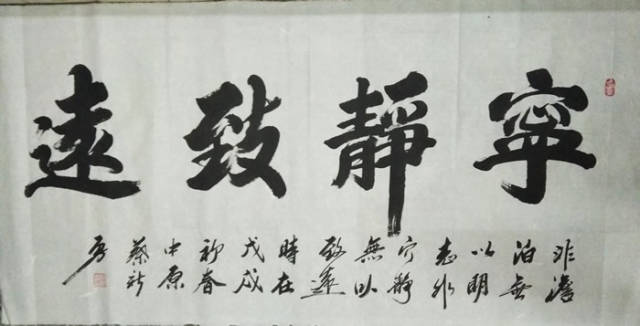 寧靜致遠
非澹
泊無
以明
志非
宁靜
無以
致遠
時在
戊戌
初春
中原
蔡